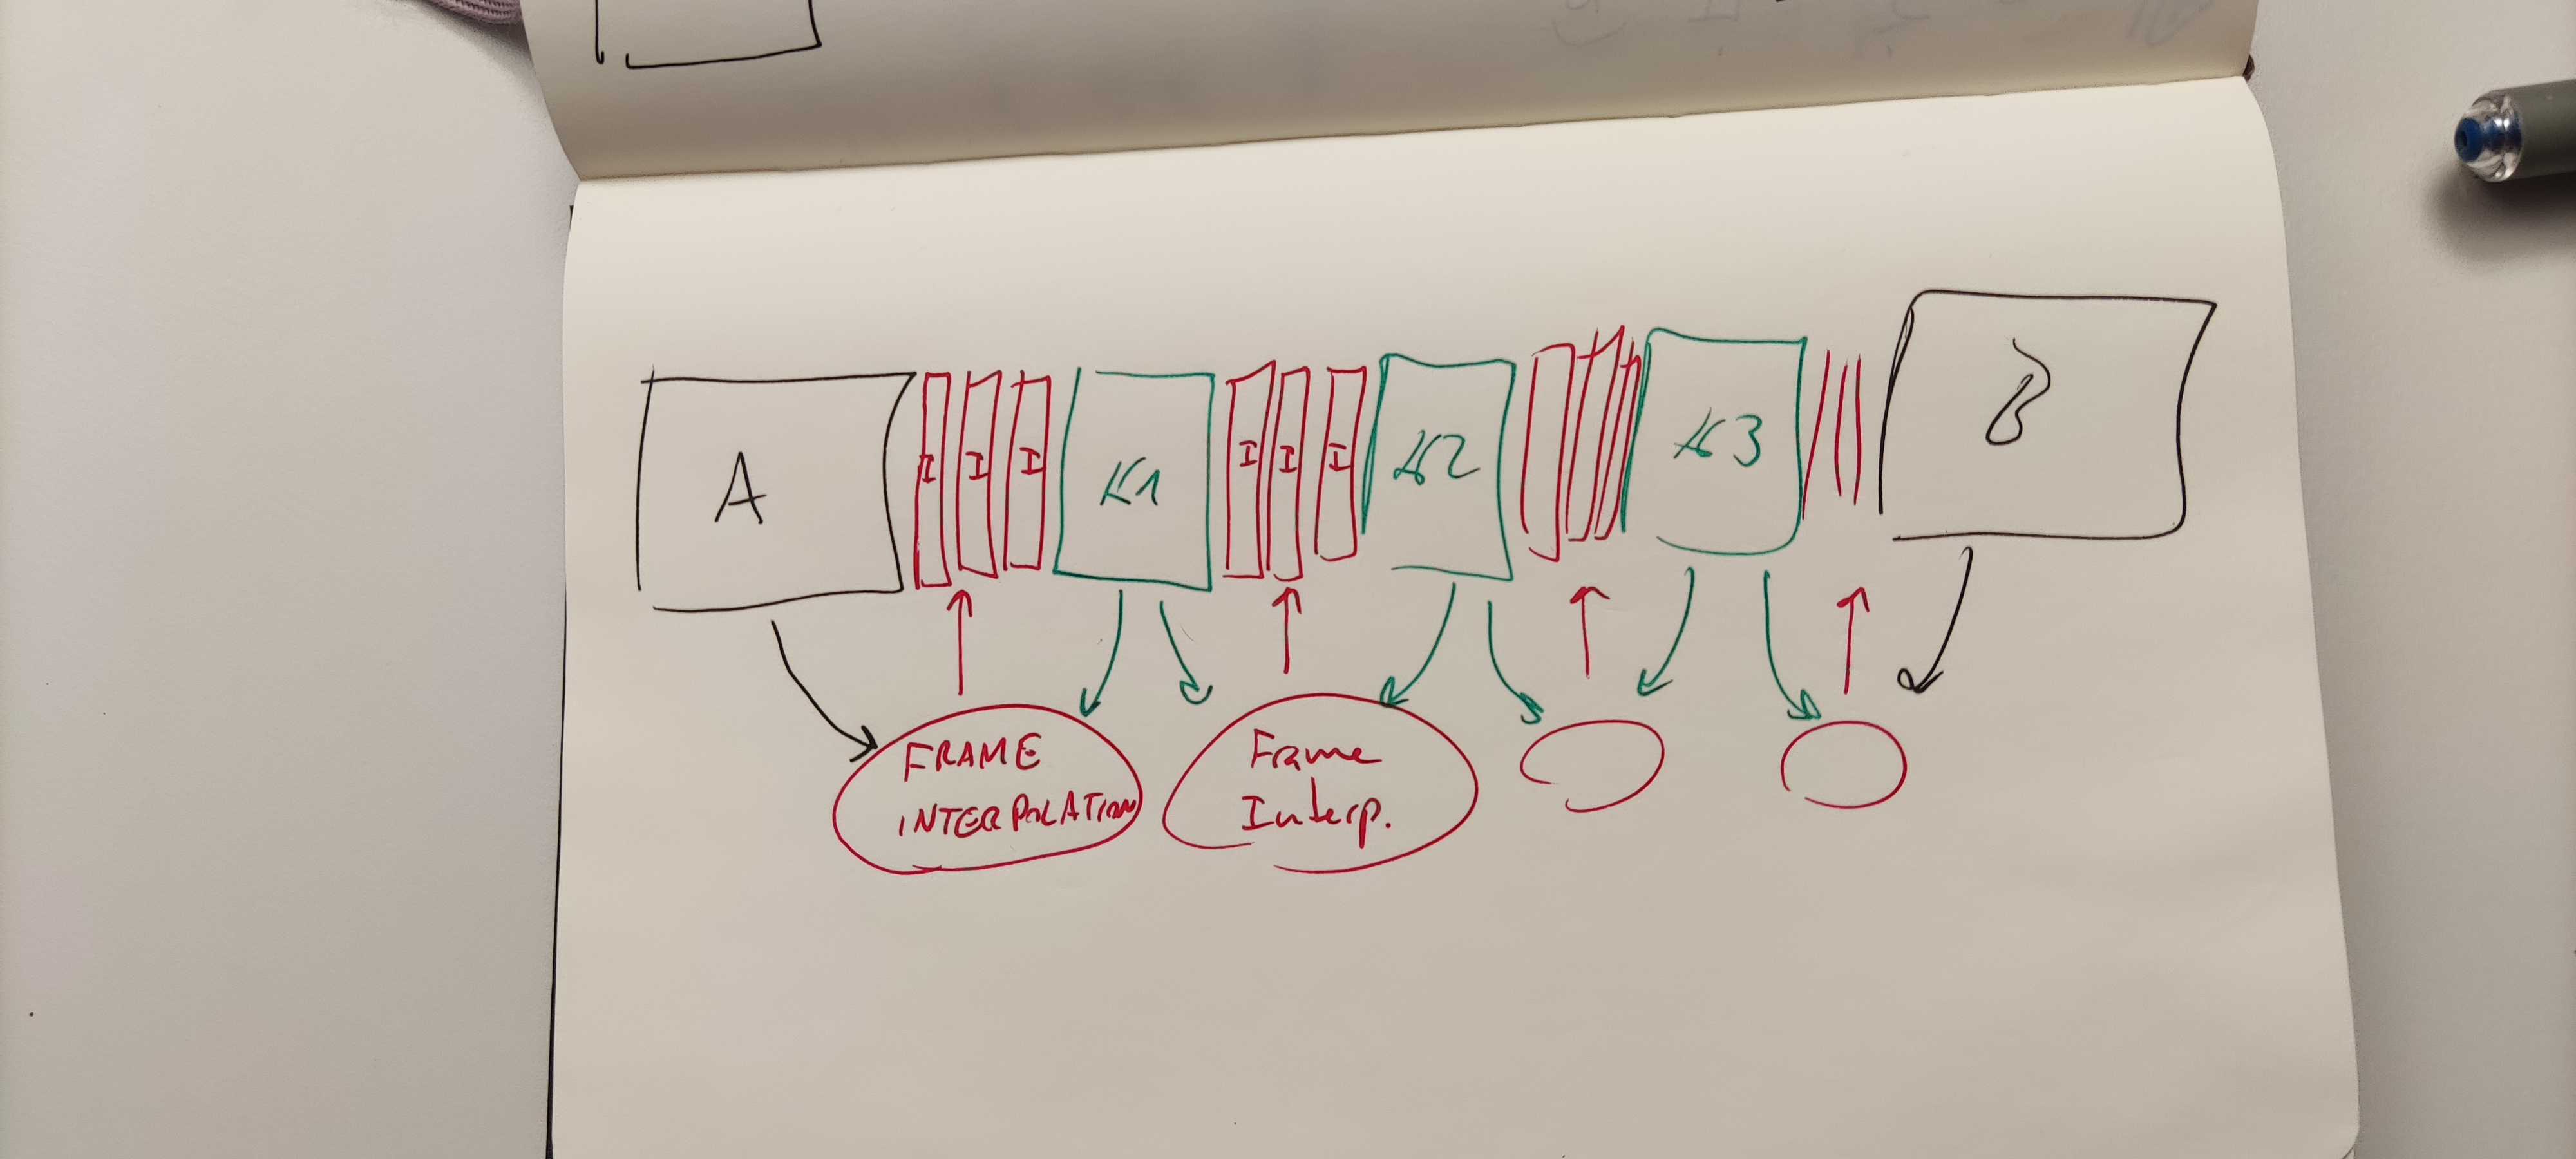 A
I
I
I
K1
I
I
I
K2
K3
B
FRAME
INTERPOLATION
Frame
Interp.